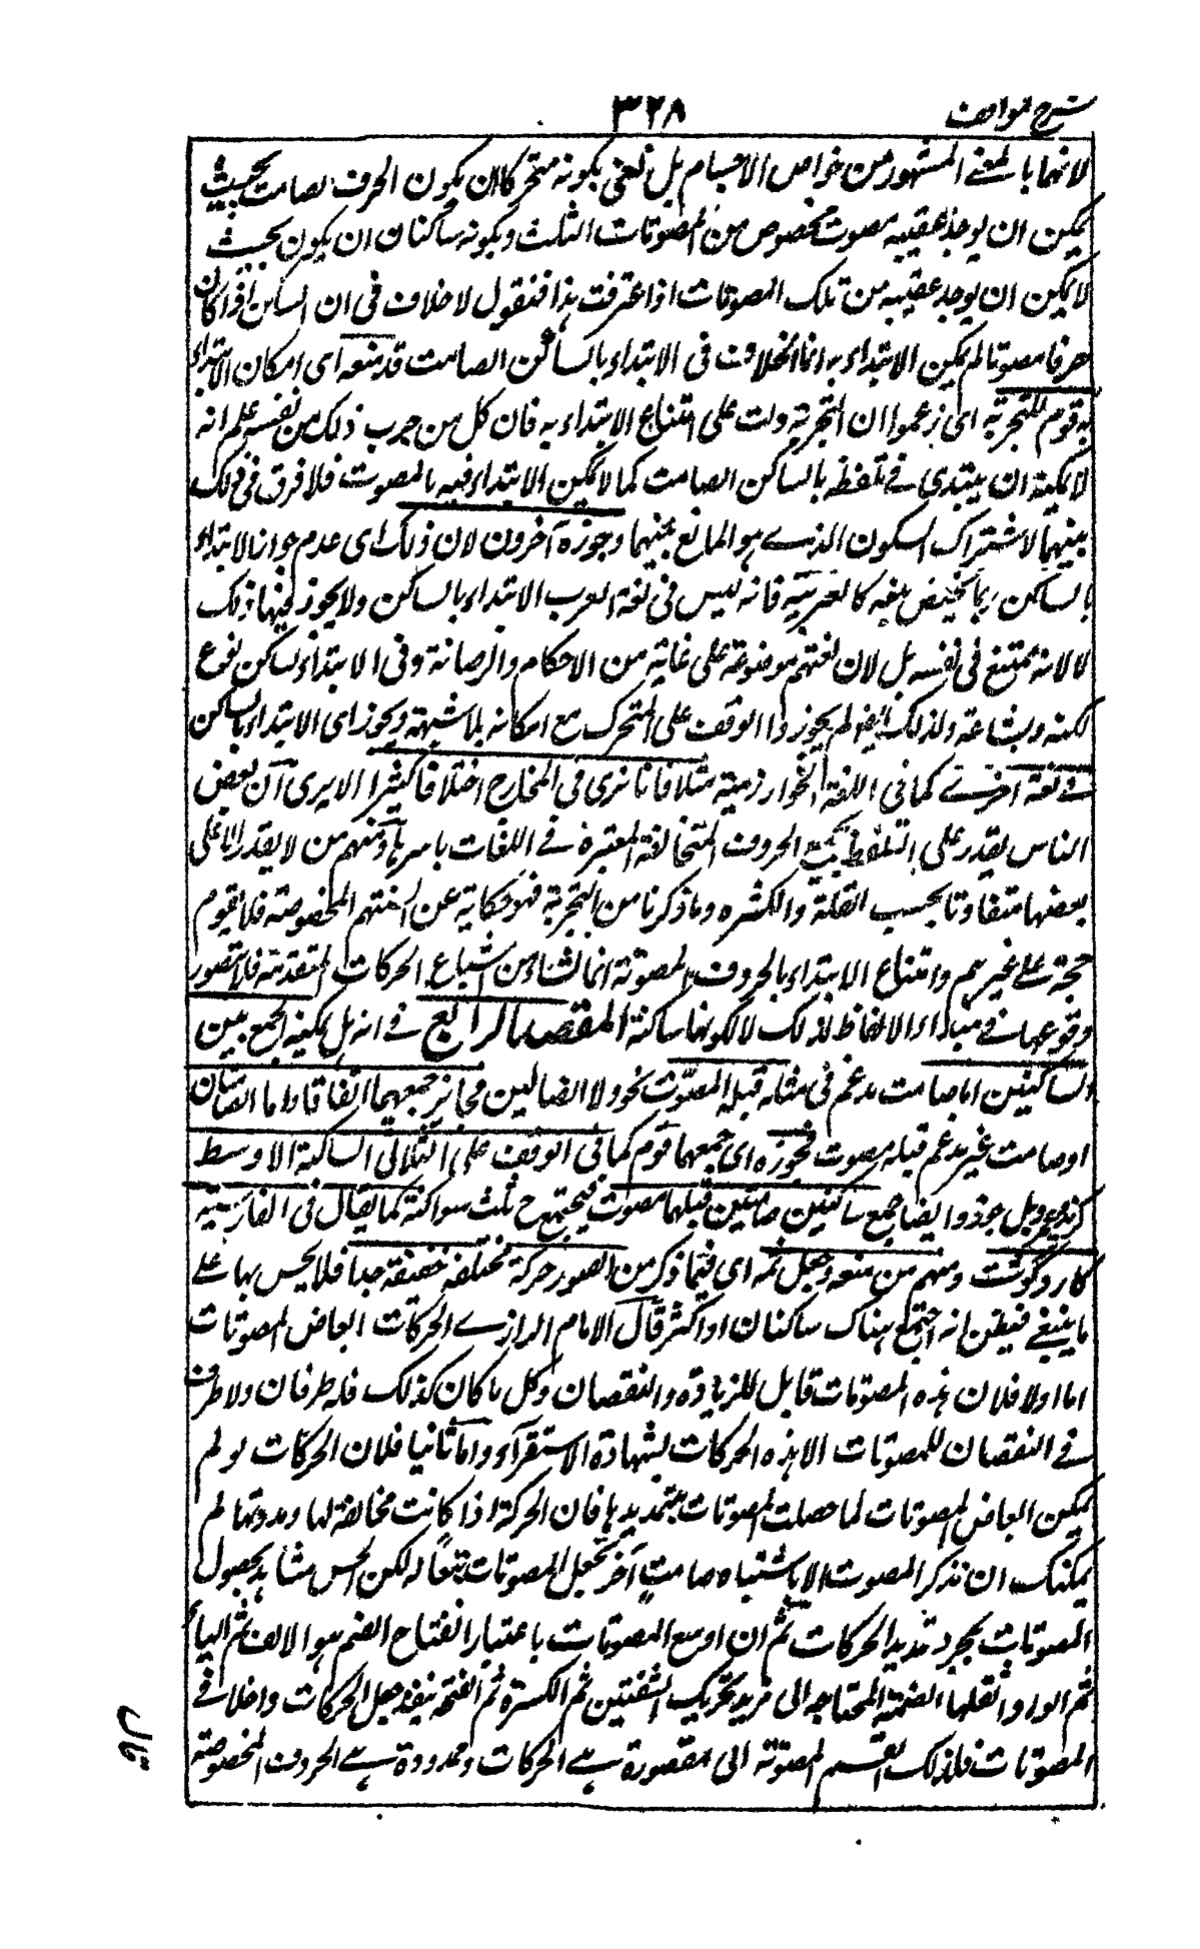 شرح المواقف
٣٢٨
لانهما بالمعنى المشهور من خواص الاجسام بل نعنى بكونه متحركا ان يكون الحرف الصامت بحيث
يمكن ان يوجد عقيبه مصوت مخصوص من المصوتات الثلث وبكونه ساكنا ان يكون بحيث
لا يمكن ان يوجد عقيبه من تلك المصوتات اذا عرفت هذا فنقول لا خلاف فى ان الساكن اذا كان
حرفا مصوتا لم يمكن الابتداء به انما الخلاف فى الابتداء بالساكن الصامت قد منعه اى امكان الابتداء
به قوم للتجربة اى زعموا ان التجربة دلت على امتناع الابتداء به فان كل من جرب ذلك من نفسه علم انه
لا يمكنه ان يبتدى فى تلفظه بالساكن الصامت كما لا يمكن الابتداء فيه بالمصوت فلا فرق فى ذلك
بينهما لاشتراك السكون الذى هو المانع بينهما وجوزه آخرون لان ذلك اى عدم جواز الابتداء
بالساكن ربما يختص بلغة كالعربية فانه ليس فى لغة العرب الابتداء بالساكن ولا يجوز فيها ذلك
لا لانه ممتنع فى نفسه بل لان لغتهم موضوعة على غاية من الاحكام والرصانة وفى الابتداء بساكن نوع
لكنة وبشاعة ولذلك ايضا لم يجوزوا الوقف على المتحرك مع امكانه بلا شبهة ويجوز اى الابتداء بالساكن
فى لغة اخرى كما فى اللغة الخوارزمية مثلا فانا نرى فى المخارج اختلافا كثيرا الا يرى ان بعض
الناس يقدر على التلفظ بجميع الحروف المتخالفة المعتبرة فى اللغات باسرها ومنهم من لا يقدر الا على
بعضها متفاوتا بحسب القلة والكثرة وما ذكرنا من التجربة فهو حكاية عن السنتهم المخصوصة فلا يقوم
حجة على غيرهم وامتناع الابتداء بالحروف المصوتة انما نشاء من اشباع الحركات المتقدمة فلا يتصور
وقوعها فى مبداء الالفاظ لذلك لا لكونها ساكنة المقصد الرابع فى انه هل يمكن الجمع بين
الساكنين اما صامت مدغم فى مثله قبله المصوت نحو ولا الضالين فجائز جمعهما اتفاقا واما الصامتان
او صامت غير مدغم قبله مصوت فجوزه اى جمعهما قوم كما فى الوقف على الثلاثى الساكنة الاوسط
كزيد عمرو بل جوزوا ايضا جمع ساكنين صامتين قبلهما مصوت فيجتمع ح ثلث سواكنة كما يقال فى الفارسية
كارد كوشت ومنهم من منعه وجعل ثمه اى فيما ذكر من الصور حركة مختلفة خفيفة جدا فلا يحس بها على
ما ينبغى فيظن انه اجتمع هناك ساكنان او اكثر قال الامام الرازى الحركات ابعاض المصوتات
اما اولا فلان هذه المصوتات قابل للزيادة والنقصان وكل ما كان كذلك فله طرفان ولا طرف
فى النقصان للمصوتات الا هذه الحركات بشهادة الاستقراء واما ثانيا فلان الحركات لو لم
يمكن ابعاض المصوتات لما حصلت المصوتات بتمديدها فان الحركة اذا كانت مخالفة لها ومددتها لم
يمكنك ان تذكر المصوت الا باشتباه صامت آخر تجعل المصوتات تبعا له لكن الحس مشاهد بحصول
المصوتات بمجرد تمديد الحركات ثم ان اوسع المصوتات باعتبار انفتاح الفم هو الالف ثم الياء
ثم الواو واثقلها الضمة المحتاجه الى مزيد تحريك الشفتين ثم الكسرة ثم الفتحة فقد جعل الحركات داخلا فى
المصوتات فلذلك انقسم المصوتة الى مقصورة هى الحركات وممدودة هى الحروف المخصوصة
قال